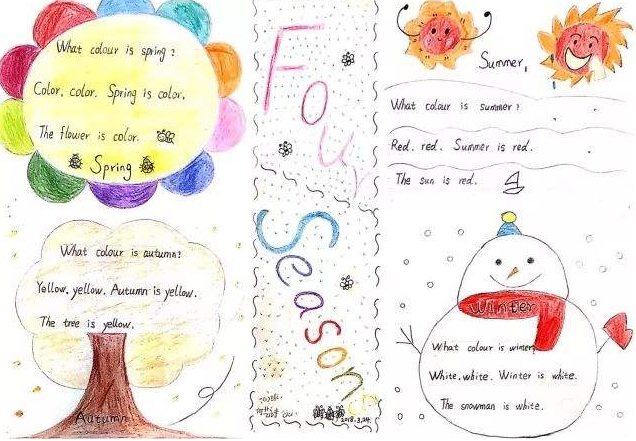 What colour is spring?
Color, color. Spring is color.
The flower is color.
Spring
Four
Seasons
2018.3.24
Summer
What colour is summer?
Red, red. Summer is red.
The sun is red.
What colour is autumn?
Yellow, yellow. Autumn is yellow.
The tree is yellow.
Autumn
Winter
What colour is winter
White, white. Winter is white.
The snowman is white.